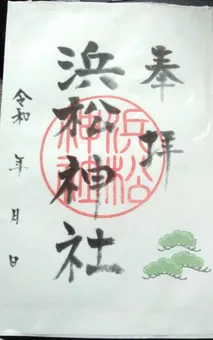 奉拝
浜松神社
浜松神社
令和 年 月 日